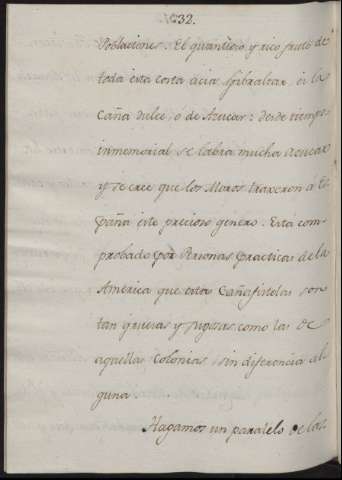 32.
Poblaciones. El quantioso y rico fruto de
toda esta costa acia Gibraltar, es la
Caña dulce, ó de Azucar: desde tiempo
inmemorial se labra mucha azucar
y se cree que los Moros traxeron á Es
paña este precioso genero. Está com
probado por Personas practicas de la
America que estas Cañafistolas son
tan gruesas y jugosas como las de
aquellas Colonias, sin diferencia al
guna.
Hagamos un paralelo de las